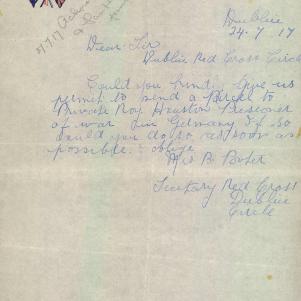 Dublin
24-7-17
Dear Sir
Dublin Red Cross Circle
Could you kindly give us
permit to send a Parcel to
Private Roy Heaston Prisoner
of war in Germany If so
could you do so as soon as
possible. & oblige
Mrs B
Secretary Red Cross
Dublin
Circle